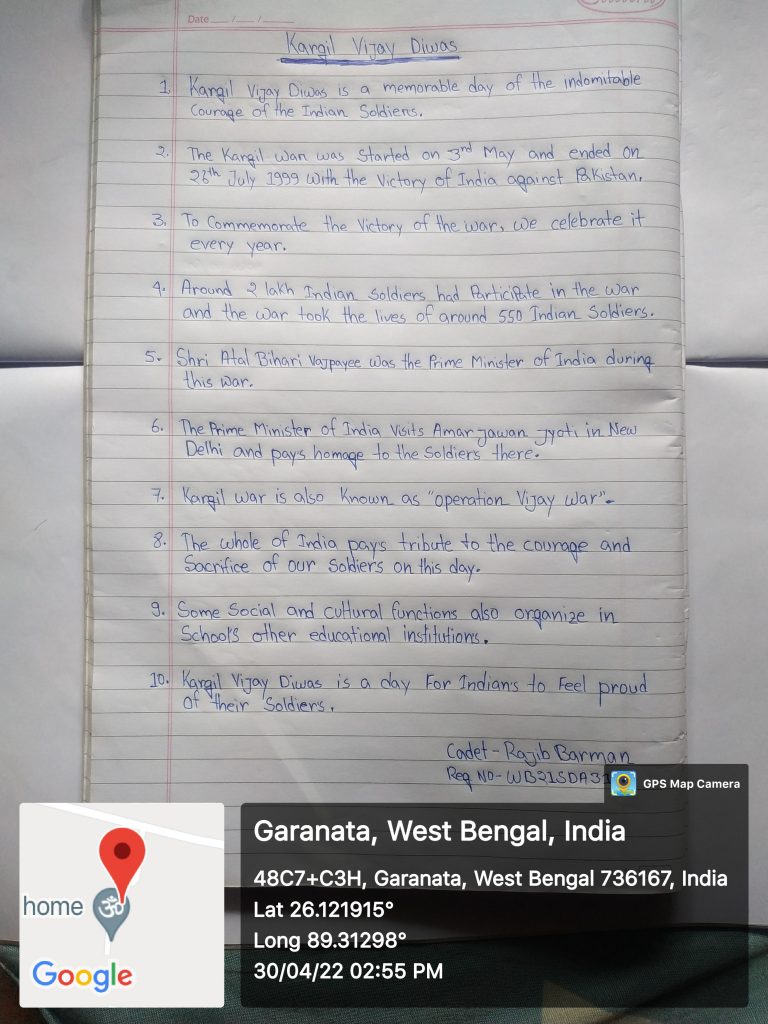 Date __/__/__
Kargil Vijay Diwas
1. Kargil Vijay Diwas is a memorable day of the indomitable
Courage of the Indian Soldiers.
2. The Kargil war was Started on 3rd May and ended on
26th July 1999 with the Victory of India against Pakistan.
3. To Commemorate the Victory of the war, we celebrate it
every year.
4. Around 2 lakh Indian Soldiers had Participate in the war
and the war took the lives of around 550 Indian Soldiers.
5. Shri Atal Bihari Vajpayee was the Prime Minister of India during
this war.
6. The Prime Minister of India Visits Amar jawan jyoti in New
Delhi and pays homage to the Soldiers there.
7. Kargil war is also Known as "operation Vijay war".
8. The whole of India pays tribute to the courage and
Sacrifice of our Soldiers on this day.
9. Some Social and cultural functions also organize in
School's other educational institutions.
10. Kargil Vijay Diwas is a day For Indian's to Feel proud
of their Soldiers.
Cadet - Rajib Barman
Reg NO - WB21SDA31
GPS Map Camera
Garanata, West Bengal, India
48C7+C3H, Garanata, West Bengal 736167, India
Lat 26.121915°
Long 89.31298°
30/04/22 02:55 PM
home
Google